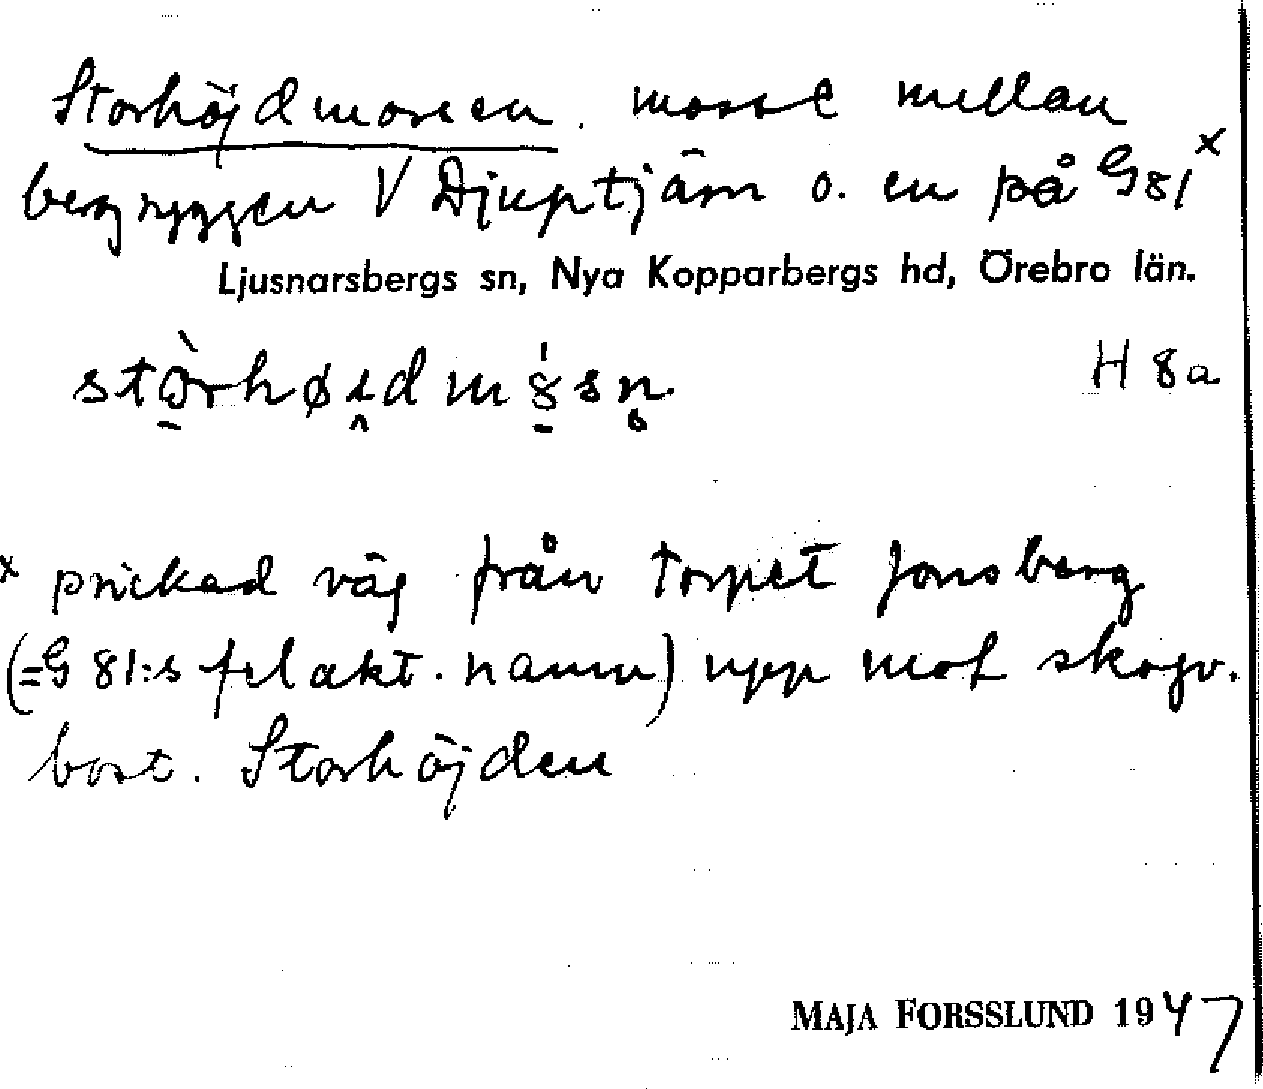 Storhöjdmossen. mosse mellan
bergryggen V Djuptjärn o. en på G81 x
Ljusnarsbergs sn, Nya Kopparbergs hd, Örebro län.
H 8a
x prickad väg från torpet Jonsberg
(=G 81:s felakt. namn) upp mot skogv.
bost. Storhöjden
MAJA FORSSLUND 1947